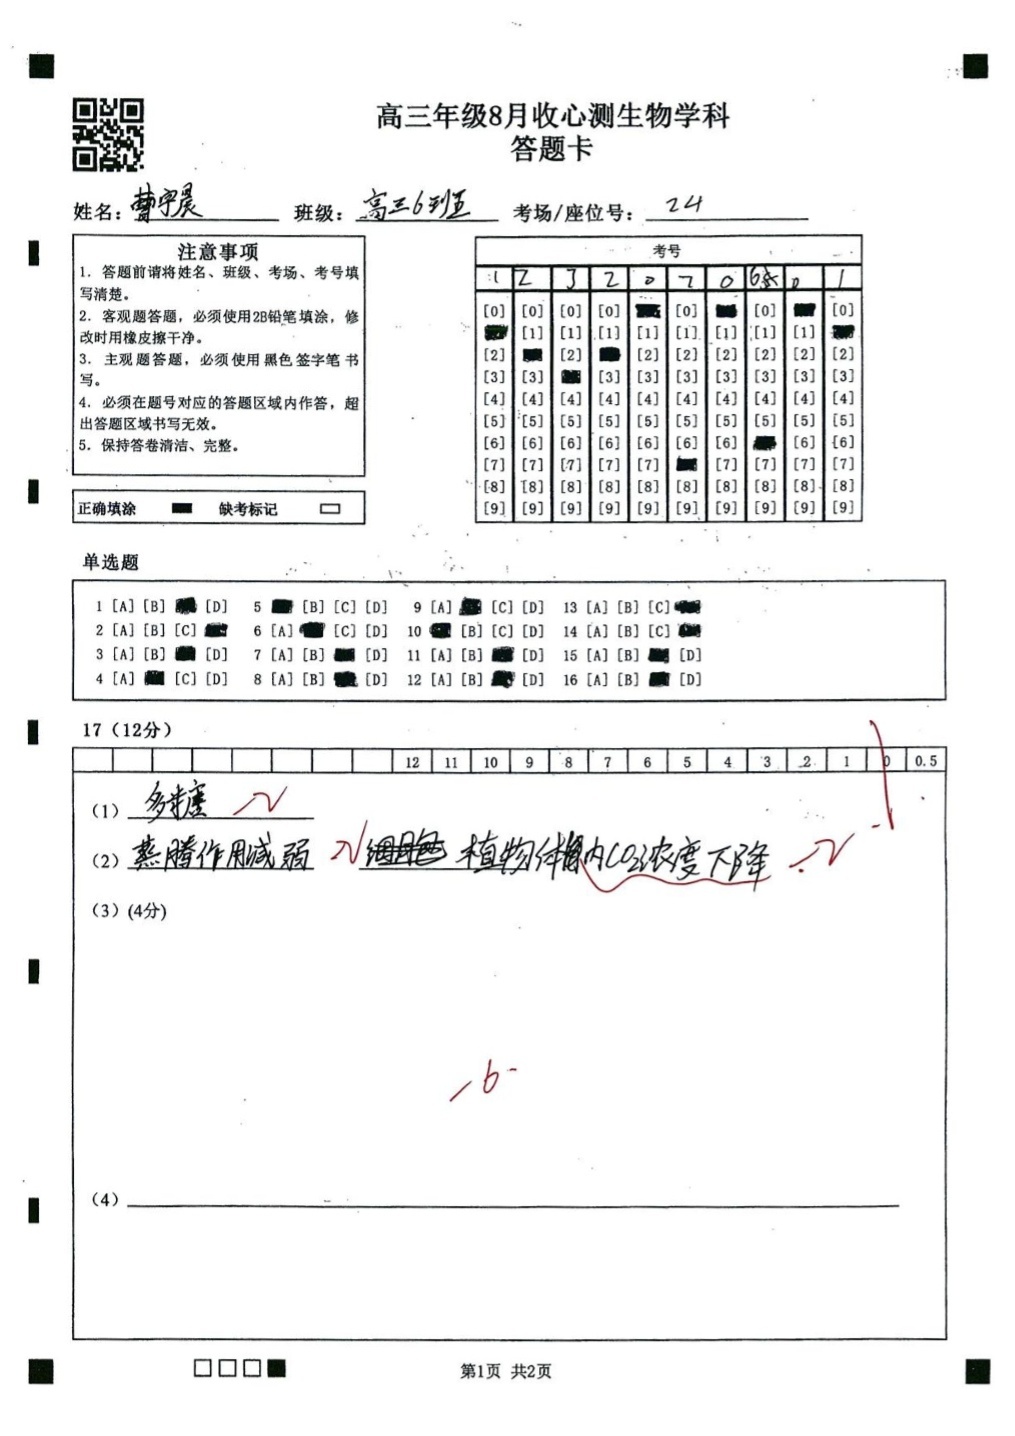 高三年级8月收心测生物学科
答题卡
姓名: 曹宇晨 班级: 高三6班 考场/座位号: 24
注意事项
1. 答题前请将姓名、班级、考场、考号填
写清楚。
2. 客观题答题,必须使用2B铅笔填涂,修
改时用橡皮擦干净。
3. 主观题答题,必须使用黑色签字笔书
写。
4. 必须在题号对应的答题区域内作答,超
出答题区域书写无效。
5. 保持答卷清洁、完整。
正确填涂 缺考标记
考号
1 2 3 2 0 7 0 6 0 1
[0] [0] [0] [0] [0] [0]
[1] [1] [1] [1] [1] [1] [1] [1]
[2] [2] [2] [2] [2] [2] [2] [2]
[3] [3] [3] [3] [3] [3] [3] [3] [3]
[4] [4] [4] [4] [4] [4] [4] [4] [4] [4]
[5] [5] [5] [5] [5] [5] [5] [5] [5] [5]
[6] [6] [6] [6] [6] [6] [6] [6] [6]
[7] [7] [7] [7] [7] [7] [7] [7] [7]
[8] [8] [8] [8] [8] [8] [8] [8] [8] [8]
[9] [9] [9] [9] [9] [9] [9] [9] [9] [9]
单选题
1 [A] [B] [D] 5 [B] [C] [D] 9 [A] [C] [D] 13 [A] [B] [C]
2 [A] [B] [C] 6 [A] [C] [D] 10 [B] [C] [D] 14 [A] [B] [C]
3 [A] [B] [D] 7 [A] [B] [D] 11 [A] [B] [D] 15 [A] [B] [D]
4 [A] [C] [D] 8 [A] [B] [D] 12 [A] [B] [D] 16 [A] [B] [D]
17(12分)
12 11 10 9 8 7 6 5 4 3 2 1 0 0.5
(1) 多糖
(2) 蒸腾作用减弱 植物体内CO2浓度下降
(3)(4分)
6
(4)
第1页 共2页